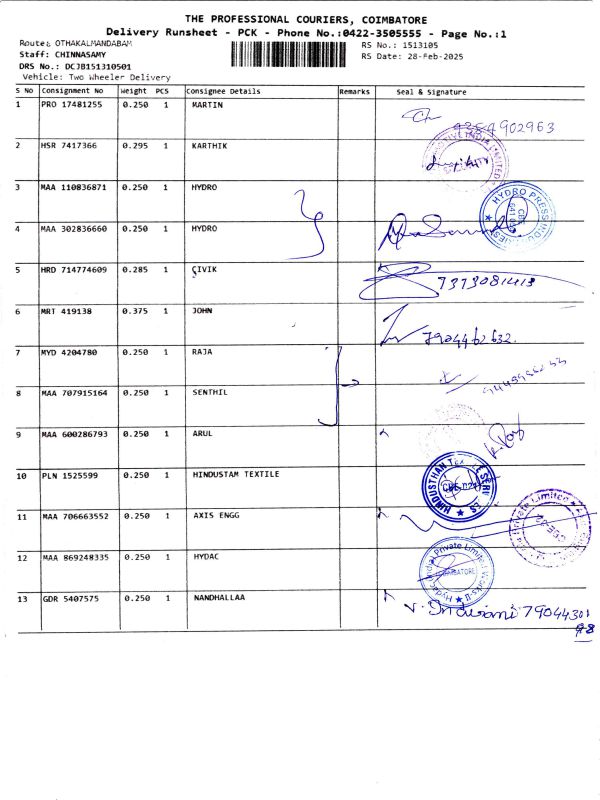 THE PROFESSIONAL COURIERS, COIMBATORE
Delivery Runsheet - PCK - Phone No.:0422-3505555 - Page No.:1
Route: OTHAKALMANDABAM RS No.: 1513105
Staff: CHINNASAMY RS Date: 28-Feb-2025
DRS No.: DCJB151310501
Vehicle: Two Wheeler Delivery
S No Consignment No Weight PCS Consignee Details Remarks Seal & Signature
1 PRO 17481255 0.250 1 MARTIN
2 HSR 7417366 0.295 1 KARTHIK
3 MAA 110836871 0.250 1 HYDRO
HYDRO PRESS INDUSTRIES
4 MAA 302836660 0.250 1 HYDRO
5 HRD 714774609 0.285 1 ÇIVIK 7373081413
6 MRT 419138 0.375 1 JOHN 7904462632.
7 MYD 4204780 0.250 1 RAJA
8 MAA 707915164 0.250 1 SENTHIL
9 MAA 600286793 0.250 1 ARUL
10 PLN 1525599 0.250 1 HINDUSTAM TEXTILE
11 MAA 706663552 0.250 1 AXIS ENGG
12 MAA 869248335 0.250 1 HYDAC
13 GDR 5407575 0.250 1 NANDHALLAA V. Indurani 79044301
98